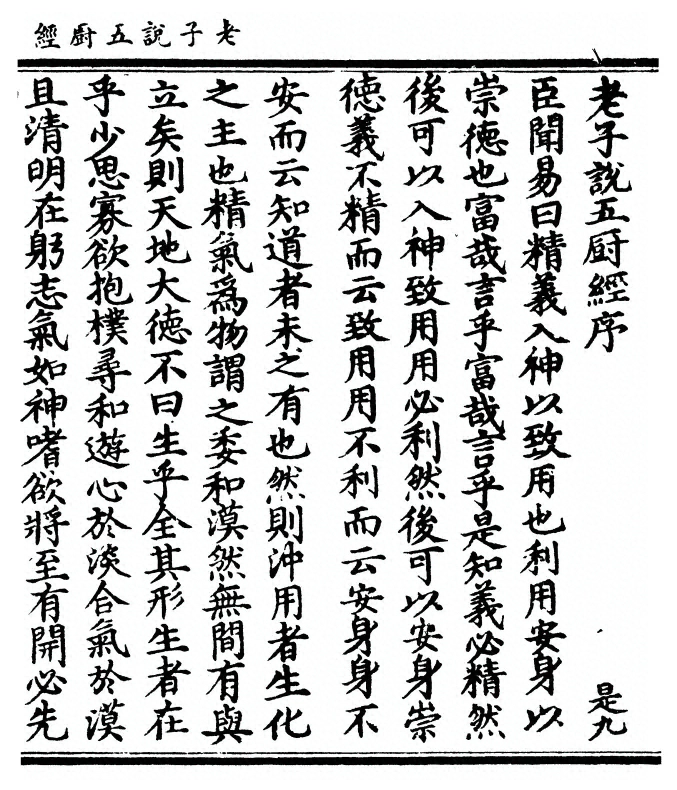 老子說五廚經
老子說五厨經序
是九
臣聞易曰精義入神以致用也利用安身以
崇德也富哉言乎富哉言乎是知義必精然
後可以入神致用用必利然後可以安身崇
德義不精而云致用用不利而云安身身不
安而云知道者未之有也然則沖用者生化
之主也精氣爲物謂之委和漠然無間有與
立矣則天地大德不曰生乎全其形生者在
乎少思寡欲抱樸尋和遊心於淡合氣於漠
且清明在躬志氣如神嗜欲將至有開必先